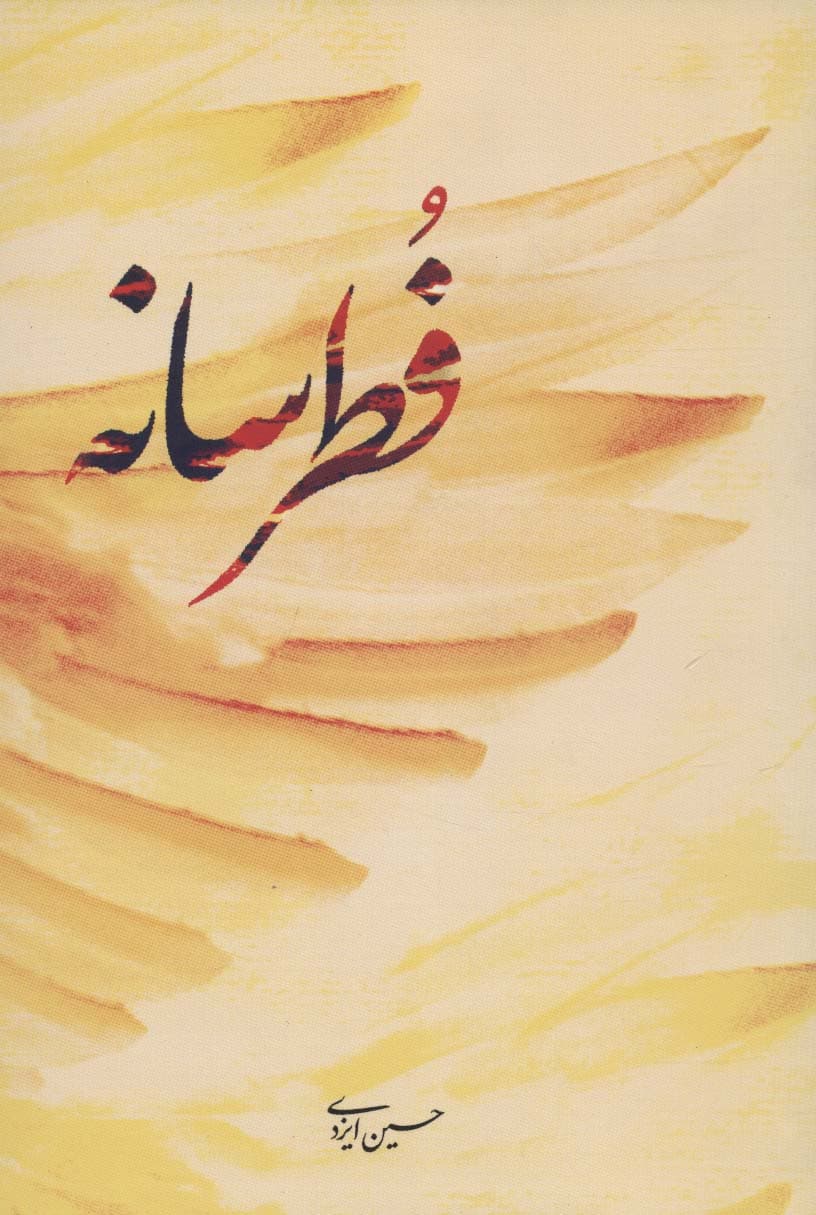 فُطرسانه
حسین ایزدی